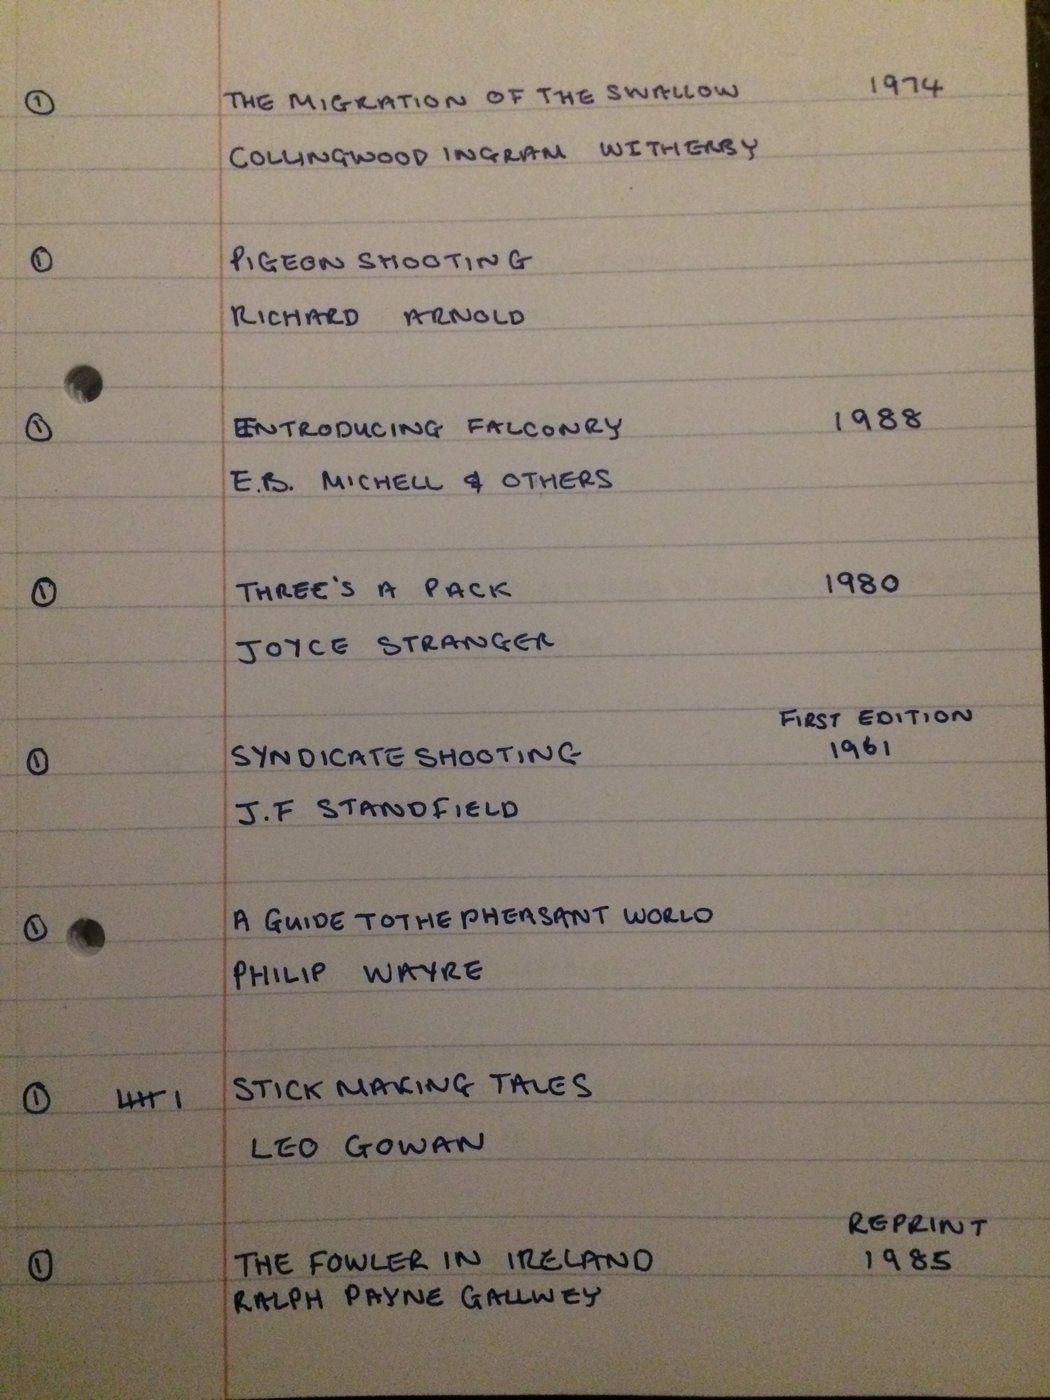 ① THE MIGRATION OF THE SWALLOW 1974
COLLINGWOOD INGRAM WITHERBY
① PIGEON SHOOTING
RICHARD ARNOLD
① ENTRODUCING FALCONRY 1988
E.B. MICHELL & OTHERS
① THREE'S A PACK 1980
JOYCE STRANGER
FIRST EDITION
① SYNDICATE SHOOTING 1961
J.F STANDFIELD
① A GUIDE TO THE PHEASANT WORLD
PHILIP WAYRE
① 𝍸 I STICK MAKING TALES
LEO GOWAN
REPRINT
① THE FOWLER IN IRELAND 1985
RALPH PAYNE GALLWEY